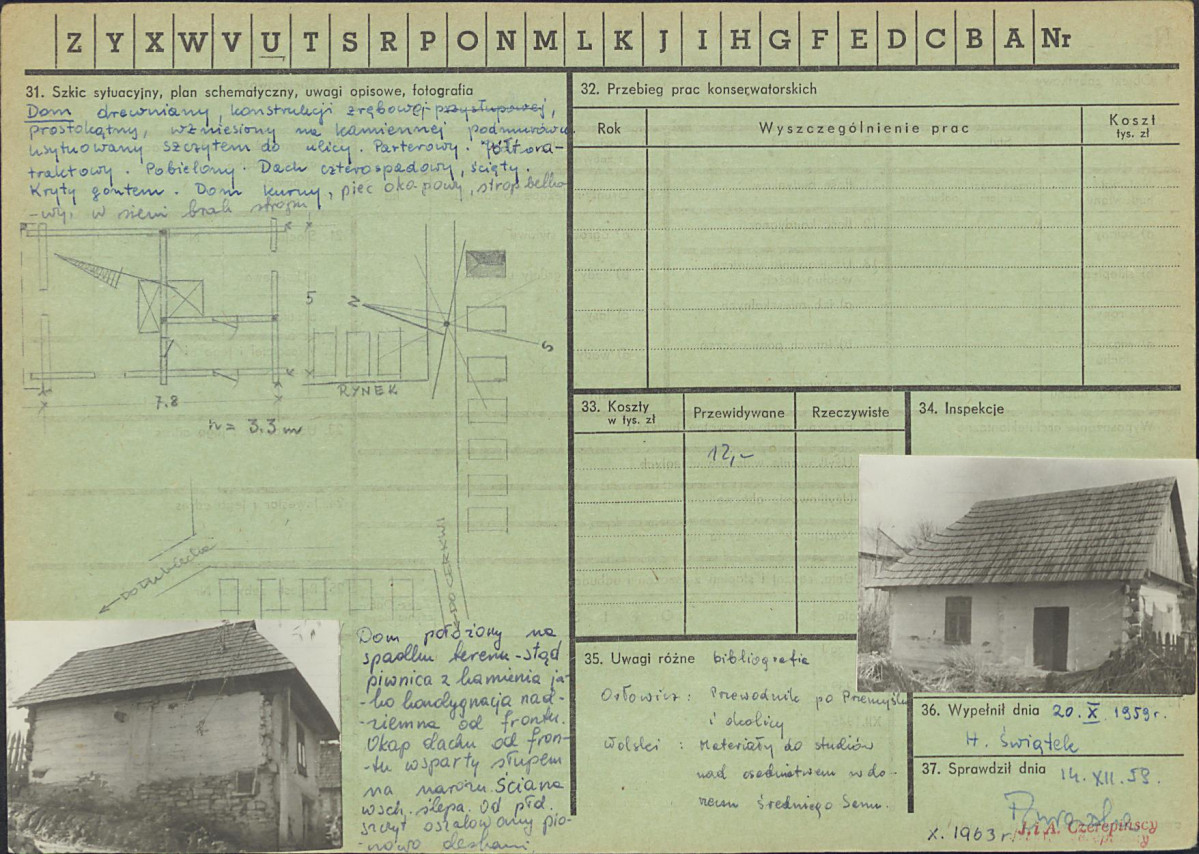 Z Y X W V U T S R P O N M L K J I H G F E D C B A Nr
31. Szkic sytuacyjny, plan schematyczny, uwagi opisowe, fotografia
Dom drewniany, konstrukcji zrębowej przysłupowej,
prostokątny, wzniesiony na kamiennej podmurówce
usytuowany szczytem do ulicy. Parterowy. Półtora-
traktowy. Pobielony. Dach czterospadowy, ścięty.
Kryty gontem. Dom kurny, piec okapowy, strop belko
-wy, w sieni brak stropu,
5
N
S
RYNEK
7.8
h = 3.3 m
DO CERKWI
Dom położony na
spadku terenu - stąd
piwnica z kamienia ja-
-ko kondygnacja nad-
-ziemna od frontu.
Okap dachu od fron-
-tu wsparty słupem
na narożu. Ściana
wsch. ślepa. Od płd.
szczyt oszalowany pio-
-nowo deskami.
32. Przebieg prac konserwatorskich
Rok
Wyszczególnienie prac
Koszt
tys. zł
33. Koszty
w tys. zł
Przewidywane
Rzeczywiste
12,-
34. Inspekcje
35. Uwagi różne bibliografia
Orłowicz: Przewodnik po Przemyślu
i okolicy
Wolski: Materiały do studiów
nad osadnictwem w do-
rzeczu Średniego Sanu.
36. Wypełnił dnia 20. X 1959 r.
H. Świątek
37. Sprawdził dnia 14. XII. 59.
X. 1963 r.
J. i A. Czerepińscy